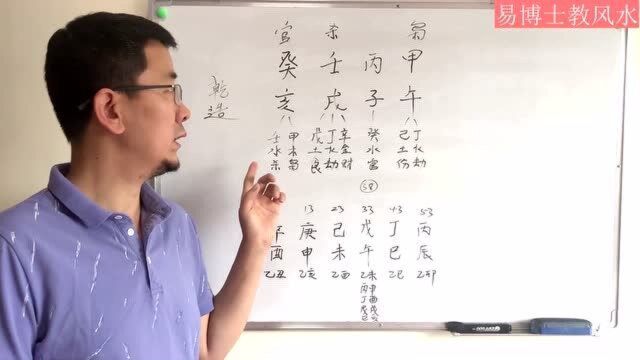 易博士教风水
官 杀 枭
癸 壬 丙 甲
乾造
亥 戌 子 午
壬水杀 甲木枭 戊土食 丁火劫 辛金财 癸水官 己土伤 丁火劫
38
13 23 33 43 53
庚 己 戊 丁 丙
酉 申 未 午 巳 辰
乙丑 乙亥 乙酉 乙未 乙巳 乙卯
丙申
丁酉